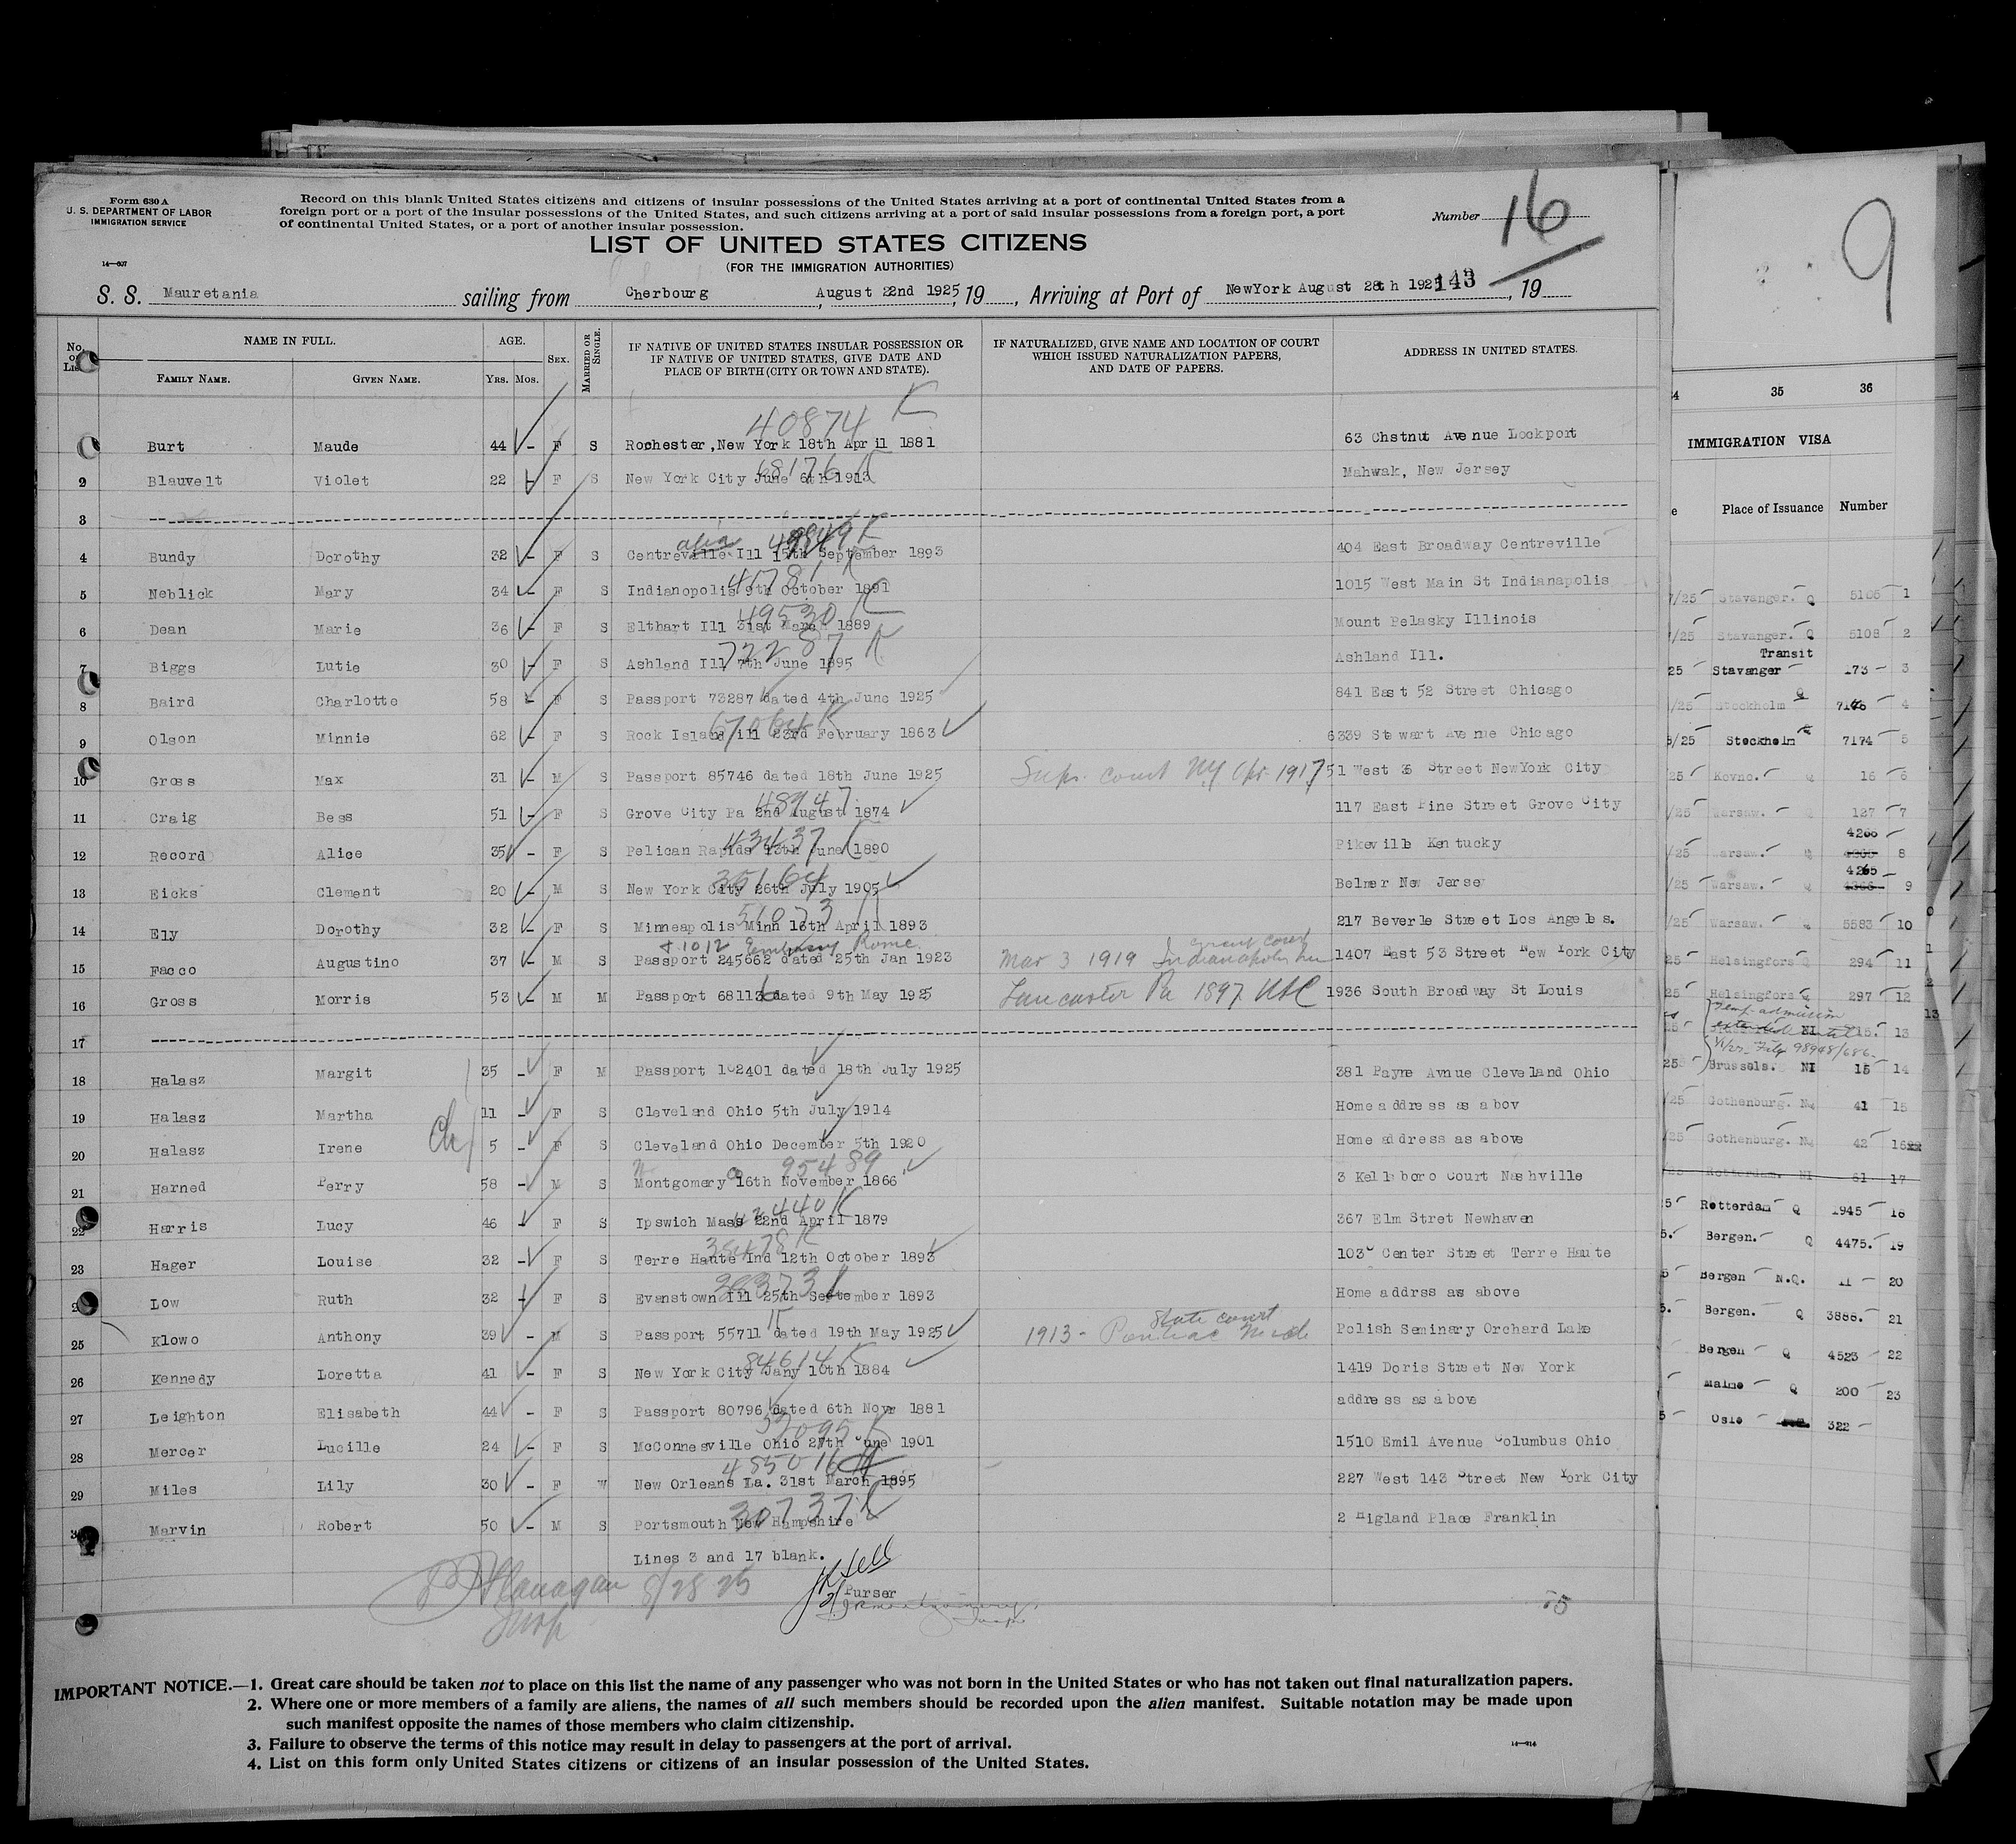 Form 630 A
U. S. DEPARTMENT OF LABOR
IMMIGRATION SERVICE
14—607
Record on this blank United States citizens and citizens of insular possessions of the United States arriving at a port of continental United States from a
foreign port or a port of the insular possessions of the United States, and such citizens arriving at a port of said insular possessions from a foreign port, a port
of continental United States, or a port of another insular possession.
Number 16
LIST OF UNITED STATES CITIZENS
(FOR THE IMMIGRATION AUTHORITIES)
S. S. Mauretania sailing from Cherbourg, August 22nd 1925, 19, Arriving at Port of NewYork August 28th 1925 143, 19
No. on List NAME IN FULL. AGE. SEX. MARRIED OR SINGLE. IF NATIVE OF UNITED STATES INSULAR POSSESSION OR IF NATIVE OF UNITED STATES, GIVE DATE AND PLACE OF BIRTH (CITY OR TOWN AND STATE). IF NATURALIZED, GIVE NAME AND LOCATION OF COURT WHICH ISSUED NATURALIZATION PAPERS, AND DATE OF PAPERS. ADDRESS IN UNITED STATES.
FAMILY NAME. GIVEN NAME. YRS. MOS.
40874 K
Burt Maude 44 - F S Rochester, New York 18th April 1881 63 Chstnut Avenue Lockport
68176 K
2 Blauvelt Violet 22 - F S New York City June 6th 1913 Mahwak, New Jersey
3
4 Bundy Dorothy 32 - F S Centreville Ill 15th September 1893 404 East Broadway Centreville
41781 K
5 Neblick Mary 34 - F S Indianopolis 9th October 1891 1015 West Main St Indianapolis
49530 K
6 Dean Marie 36 - F S Elthart Ill 31st March 1889 Mount Pelasky Illinois
72287 K
7 Biggs Lutie 30 - F S Ashland Ill 7th June 1895 Ashland Ill.
8 Baird Charlotte 58 - F S Passport 73287 dated 4th June 1925 841 East 52 Street Chicago
67064 K
9 Olson Minnie 62 - F S Rock Island ill 23rd February 1863 6339 Stewart Avenue Chicago
10 Gross Max 31 - M S Passport 85746 dated 18th June 1925 Supr. court NY Apr 1917 51 West 36 Street NewYork City
48947
11 Craig Bess 51 - F S Grove City Pa 2nd August 1874 117 East Pine Street Grove City
43437 K
12 Record Alice 35 - F S Pelican Rapids 13th June 1890 Pikeville Kentucky
35164
13 Eicks Clement 20 - M S New York City 26th July 1905 Belmar New Jersey
51073 K
14 Ely Dorothy 32 - F S Minneapolis Minn 18th April 1893 217 Beverle Street Los Angeles.
+ 1012 Embassy Rome.
15 Facco Augustino 37 - M S Passport 245662 dated 25th Jan 1923 Mar 3 1919 circuit court Indianapolis Ind 1407 East 53 Street New York City
16 Gross Morris 53 - M M Passport 68113 dated 9th May 1925 Lancaster Pa 1897. 1936 South Broadway St Louis
17
18 Halasz Margit 35 - F M Passport 102401 dated 18th July 1925 381 Payne Avnue Cleveland Ohio
19 Halasz Martha 11 - F S Cleveland Ohio 5th July 1914 Home address as abov
20 Halasz Irene 5 - F S Cleveland Ohio December 5th 1920 Home address as above
95489
21 Harned Perry 58 - M S Montgomery 16th November 1866 3 Kellsboro Court Nashville
42440 K
22 Harris Lucy 46 - F S Ipswich Mass 22nd April 1879 367 Elm Stret Newhaven
38478 K
23 Hager Louise 32 - F S Terre Haute Ind 12th October 1893 1030 Center Street Terre Haute
Low Ruth 32 - F S Evanstown Ill 25th September 1893 Home addrss as above
25 Klowo Anthony 39 - M S Passport 55711 dated 19th May 1925 1913 - State court Pontiac Mich Polish Seminary Orchard Lake
84614 K
26 Kennedy Loretta 41 - F S New York City Jany 10th 1884 1419 Doris Street New York
27 Leighton Elisabeth 44 - F S Passport 80796 dated 6th Nove 1881 address as above
52095 K
28 Mercer Lucille 24 - F S McConnesville Ohio 27th June 1901 1510 Emil Avenue Columbus Ohio
485016
29 Miles Lily 30 - F W New Orleans La. 31st March 1895 227 West 143 Street New York City
30737 K
30 Marvin Robert 50 - M S Portsmouth New Hampshire 2 Higland Place Franklin
Lines 3 and 17 blank.
Flanagan 8/28 25
Insp
Purser
IMPORTANT NOTICE.—1. Great care should be taken not to place on this list the name of any passenger who was not born in the United States or who has not taken out final naturalization papers.
2. Where one or more members of a family are aliens, the names of all such members should be recorded upon the alien manifest. Suitable notation may be made upon
such manifest opposite the names of those members who claim citizenship.
3. Failure to observe the terms of this notice may result in delay to passengers at the port of arrival.
4. List on this form only United States citizens or citizens of an insular possession of the United States.
14—914
9
35 36
IMMIGRATION VISA
Place of Issuance Number
/25 Stavanger. Q 5106 1
/25 Stavanger. Q 5108 2
Transit
25 Stavanger 173 - 3
/25 Stockholm Q 7176 4
5/25 Stockholm 7174 5
25 Kovno. Q 16 6
/25 Warsaw. Q 127 7
4266
/25 Warsaw. Q 8
4265
/25 Warsaw. Q 9
/25 Warsaw. Q 5583 10
25 Helsingfors Q 294 11
25 Helsingfors Q 297 12
Temp. admission
extended until
25 NI 15. 13
File 98948/686
25 Brussels. NI 15 14
/25 Gothenburg. Nq 41 15
/25 Gothenburg. Nq 42 16
Rotterdam. NI 61 17
5 Rotterdam Q 1945 18
5. Bergen. Q 4475. 19
5 Bergen N.Q. 11 20
5. Bergen. Q 3886. 21
Bergen Q 4523 22
Malmo Q 200 23
5 Oslo 322